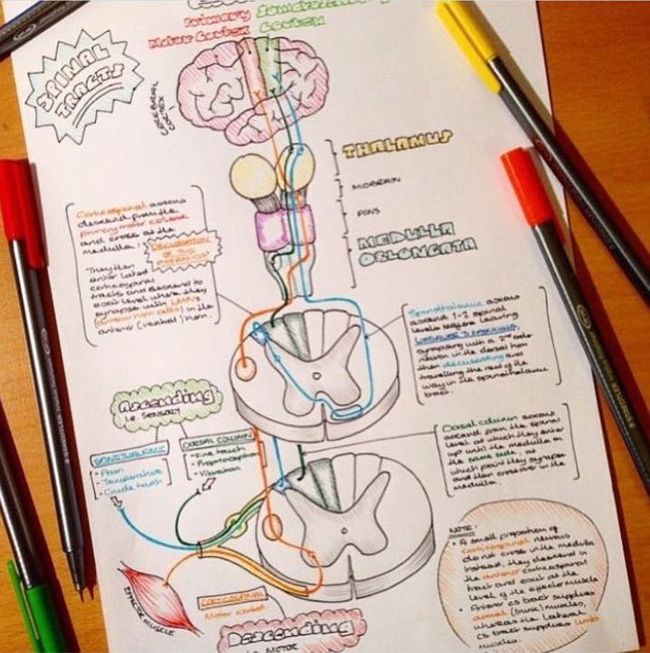 PRIMARY
MOTOR CORTEX
SOMATOSENSORY
CORTEX
SPINAL
TRACTS
CEREBRAL
CORTEX
THALAMUS
MIDBRAIN
PONS
MEDULLA
OBLONGATA
Corticospinal axons
descend from the
primary motor cortex
and cross at the
medulla.
DECUSSATION
OF THE
PYRAMIDS
They then
enter lateral
corticospinal
tracts and descend to
exit level where they
synapse with LMNs
(anterior horn cells) in the
anterior (ventral) horn.
Spinothalamic axons
ascend 1-2 spinal
levels before leaving
LISSAUER'S FASCICULUS,
synapsing with a 2nd order
neuron in the dorsal horn
then decussating and
travelling the rest of the
way in the spinothalamic
tract.
Ascending
i.e. SENSORY
SPINOTHALAMIC
• Pain
• Temperature
• Crude touch
DORSAL COLUMN
• Fine touch
• Proprioception
• Vibration
Dorsal column axons
ascend from the spinal
level at which they enter
up until the medulla on
the same side, at
which point they synapse
and then cross over in the
medulla.
EFFECTOR MUSCLE
CORTICOSPINAL
Motor control
Descending
i.e. MOTOR
NOTE:
• A small proportion of
corticospinal neurons
do not cross in the medulla
instead, they descend in
the anterior corticospinal
tract and exit at the
level of the effector muscle
• Anterior cs tract supplies
axial (trunk) muscles,
whereas the lateral
cs tract supplies limb
muscles.